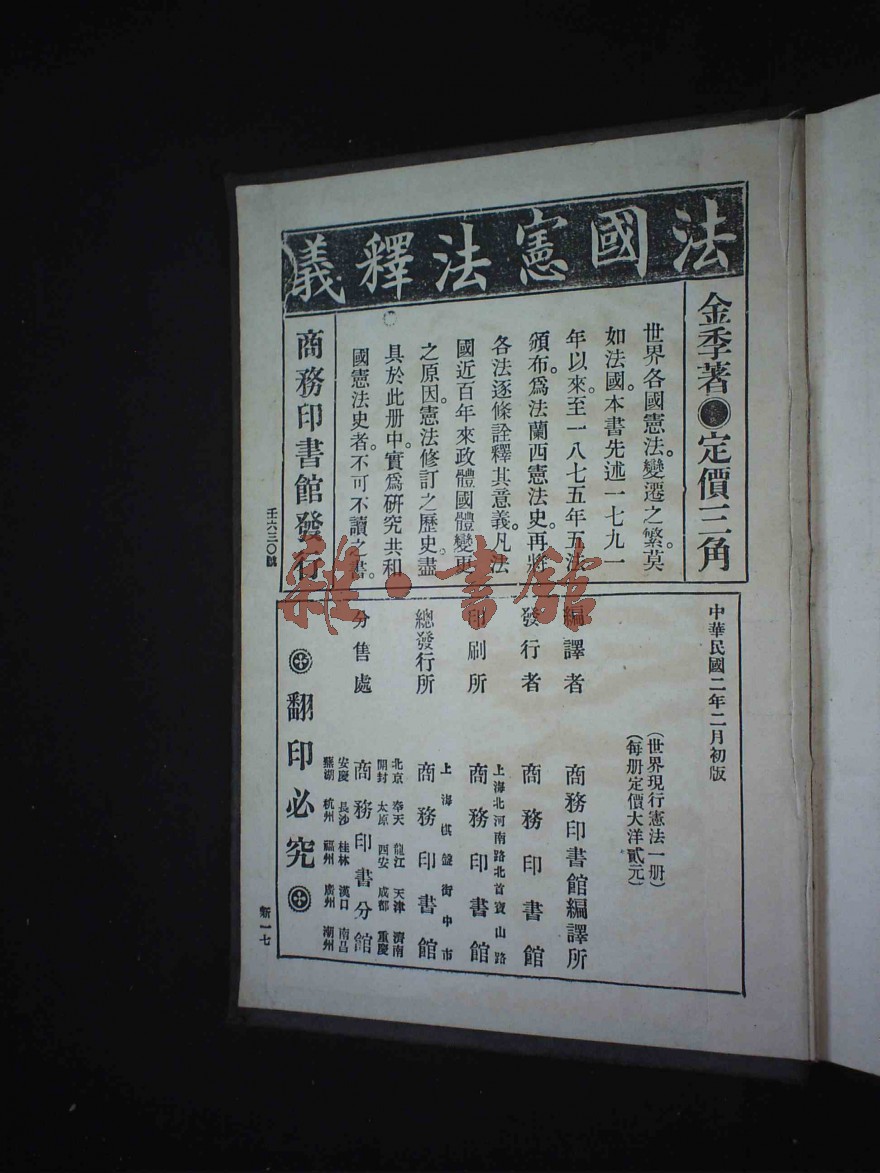 法國憲法釋義
金季著●定價三角
世界各國憲法。變遷之繁。莫
如法國。本書先述一七九一
年以來。至一八七五年五法
頒布。爲法蘭西憲法史。再將
各法逐條詮釋其意義。凡法
國近百年來政體國體變更
之原因。憲法修訂之歷史。盡
具於此册中。實爲研究共和
國憲法史者。不可不讀之書。
商務印書館發行
壬六三〇號
中華民國二年二月初版
（世界現行憲法一册）
（每册定價大洋貳元）
編譯者 商務印書館編譯所
發行者 商務印書館
上海北河南路北首寶山路
印刷所 商務印書館
上海棋盤街中市
總發行所 商務印書館
北京 奉天 龍江 天津 濟南
開封 太原 西安 成都 重慶
分售處 商務印書分館
安慶 長沙 桂林 漢口 南昌
蕪湖 杭州 福州 廣州 潮州
翻印必究
新一七
雜·書館